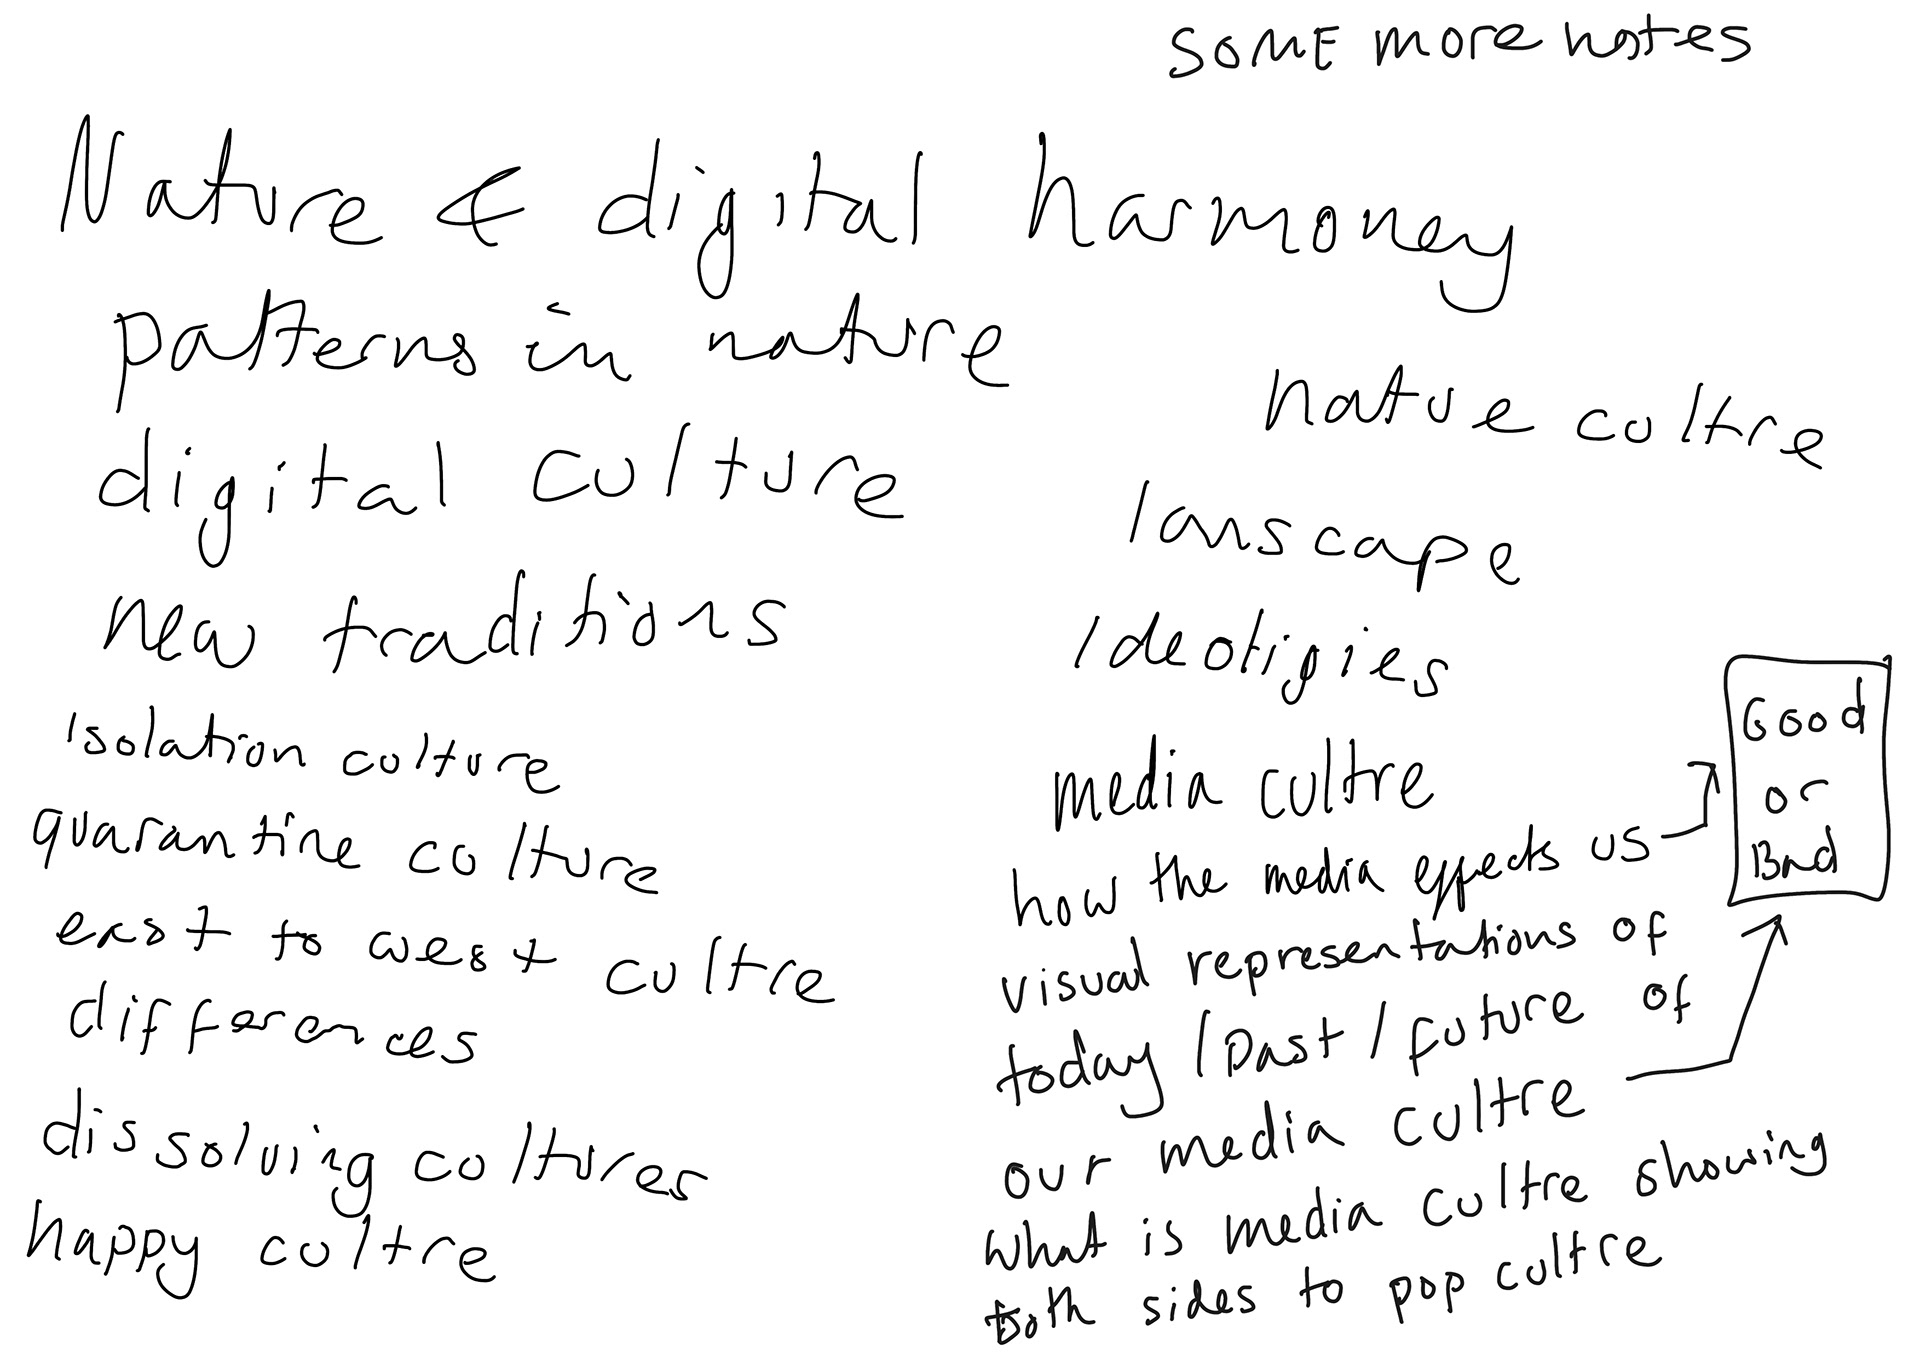 SOME more notes
Nature & digital harmoney
patterns in nature
digital culture
new traditions
isolation culture
quarantine culture
east to west cultre
differences
dissolving coltures
happy coltre
natue coltre
lanscape
Ideotigies
media cultre
how the media effects us
Good
or
Bad
visual representations of
today / Past / future of
our media cultre
What is media cultre showing
both sides to pop cultre